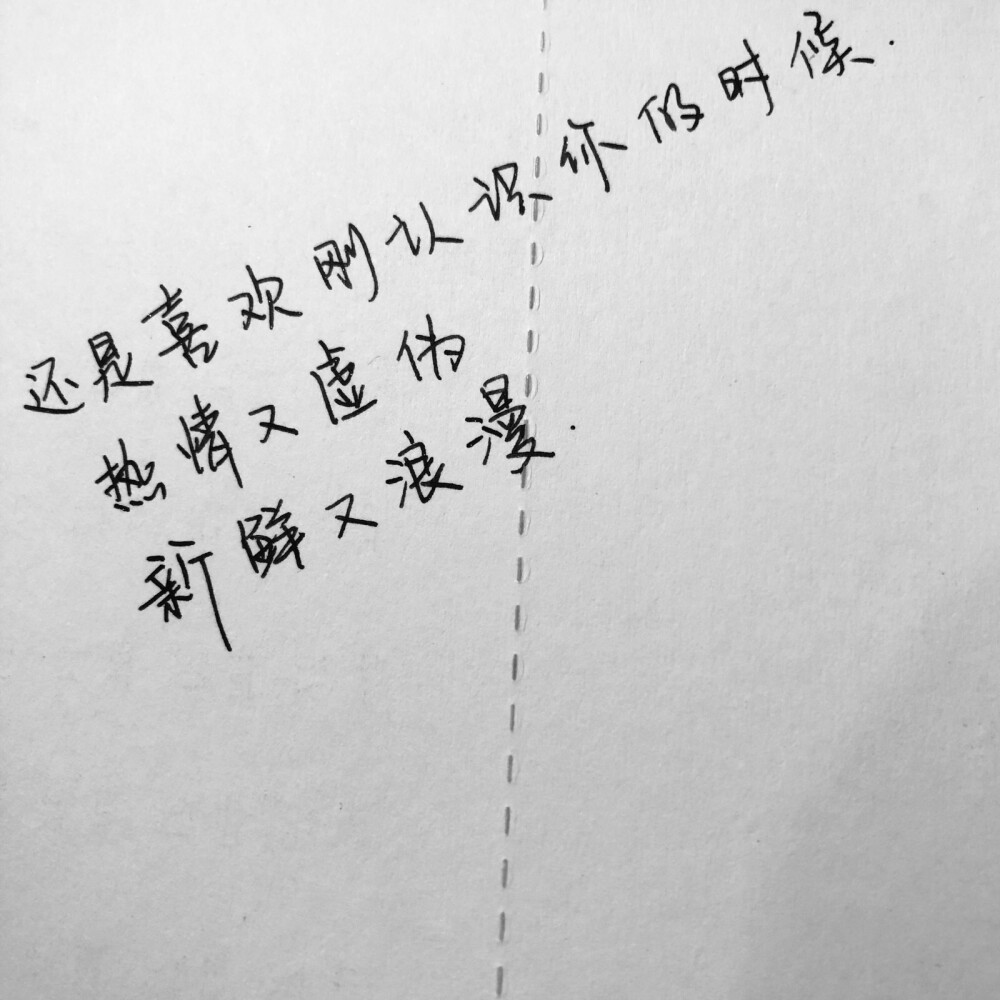 还是喜欢刚认识你的时候.
热情又虚伪
新鲜又浪漫.